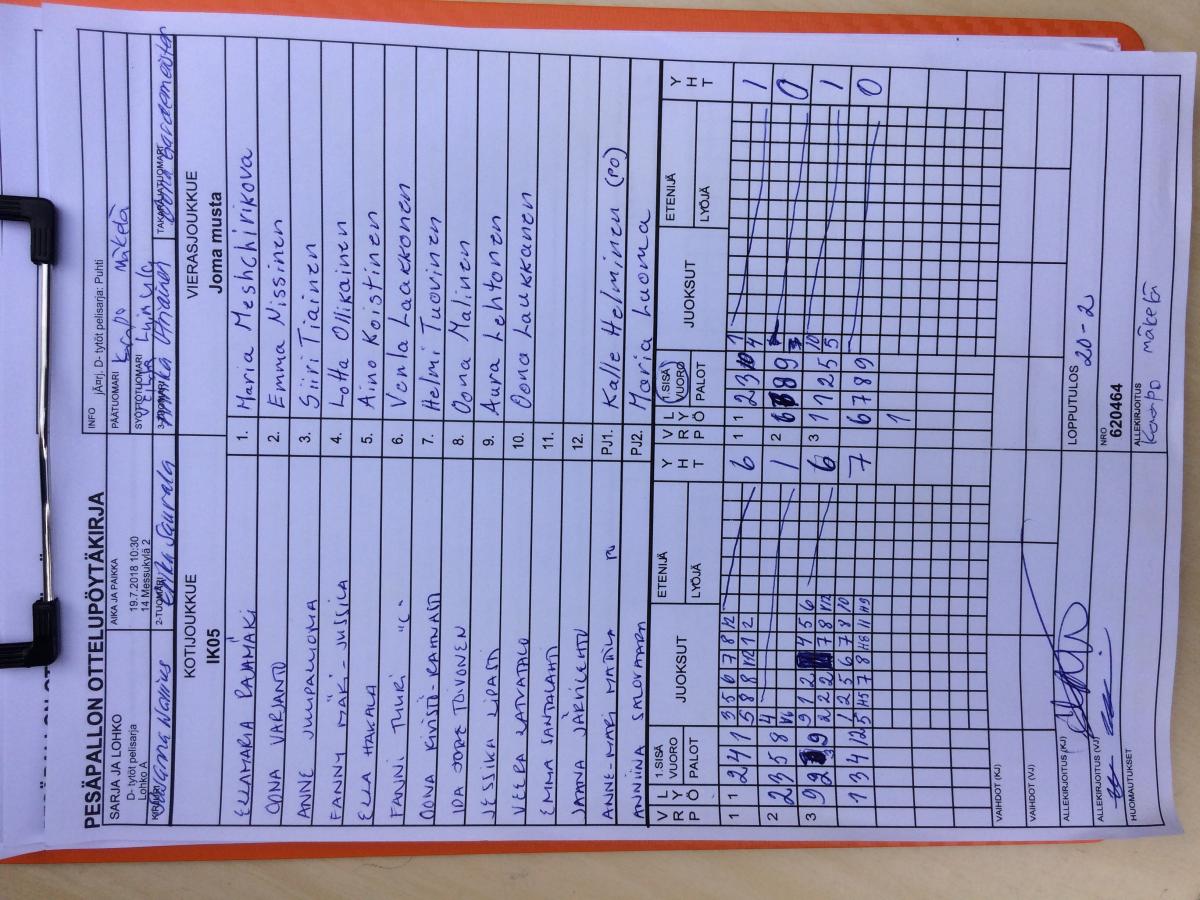 PESÄPALLON OTTELUPÖYTÄKIRJA
SARJA JA LOHKO
D- tytöt pelisarja
Lohko A
AIKA JA PAIKKA
19.7.2018 10:30
14 Messukylä 2
INFO
jÄ¤rj, D- tytöt pelisarja: Puhti
PÄÄTUOMARI Kaapo Mäkelä
SYÖTTÖTUOMARI
2-TUOMARI Erika Saurala
KOTIJOUKKUE
IK05
VIERASJOUKKUE
Joma musta
ELLAMARIA RAJAMÄKI 1. Maria Meshchirikova
OONA VARJANTO 2. Emma Nissinen
ANNE JULIPALUOMA 3. Siiri Tiainen
FANNY MÄKI-JUSSILA 4. Lotta Ollikainen
ELLA HAKALA 5. Aino Koistinen
FANNI TUURI "C" 6. Venla Laakkonen
OONA KIVISTÖ-RAHNASTO 7. Helmi Tuovinen
IDA TOIVONEN 8. Oona Malinen
JESSIKA LIPASTI 9. Aura Lehtonen
VEERA LATVATALO 10. Oona Laukkanen
EMMA SANTALAHTI 11.
JAANA JÄRVILEHTO 12.
ANNE-MARI MATTILA PJ1. Kalle Helminen (PO)
ANNIINA SALOVAARA PJ2. Maria Luoma
V R P L Y Ö 1.SISÄ VUORO PALOT JUOKSUT ETENIJÄ LYÖJÄ Y H T
V R P L Y Ö 1.SISÄ VUORO PALOT JUOKSUT ETENIJÄ LYÖJÄ Y H T
1 1 2 4 1 3 5 6 7 8 12 6 1 1 2 3 10 1 1
5 8 8 12 1 2 4
2 2 3 5 8 4 1 2 6 8 9 0
3 9 2 9 9 1 2 4 5 6 6 3 1 1 2 5 10 1
2 2 2 7 8 12 5
1 3 4 12 1 2 5 6 7 8 10 7 6 7 8 9 0
5 H5 7 8 H8 11 H9
1
VAIHDOT (KJ)
VAIHDOT (VJ)
ALLEKIRJOITUS (KJ)
LOPPUTULOS 20-2
ALLEKIRJOITUS (VJ)
NRO
620464
HUOMAUTUKSET
ALLEKIRJOITUS
Kaapo Mäkelä